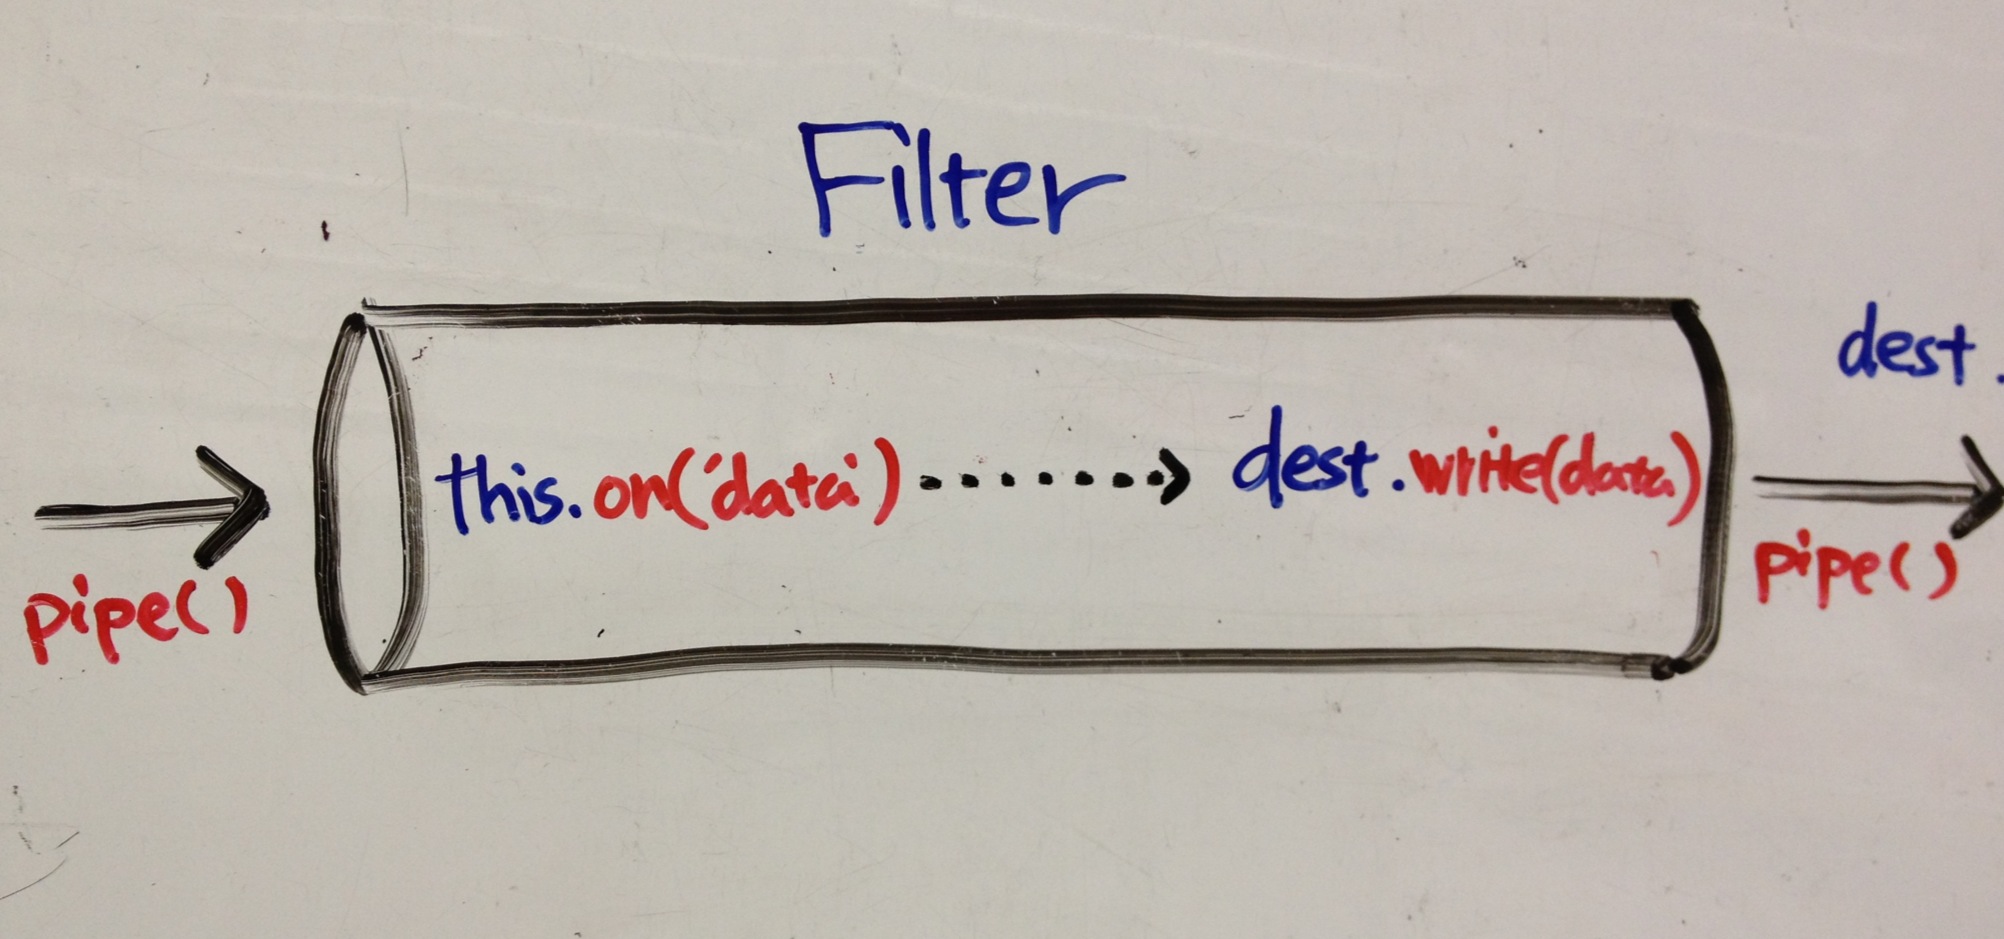 Filter
dest.
this.on('data') dest.write(data)
pipe() pipe()